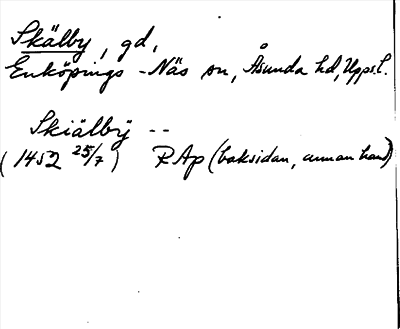 Skälby, gd,
Enköpings-Näs sn, Åsunda hd, Upps. l.
Skiälbÿ --
(1452 25/7) RAp (baksidan, annan hand)